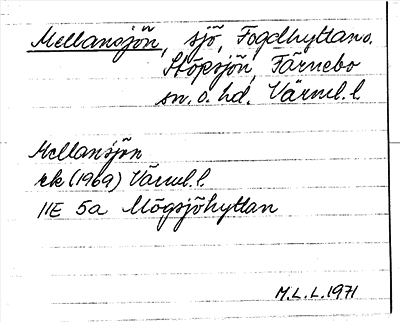 Mellansjön, sjö, Fogdhyttan o.
Stöpsjön, Färnebo
sn. o. hd. Värml. l.
Mellansjön
rk (1969) Värml. l.
11E 5a Mögsjöhyttan
M.L.L. 1971